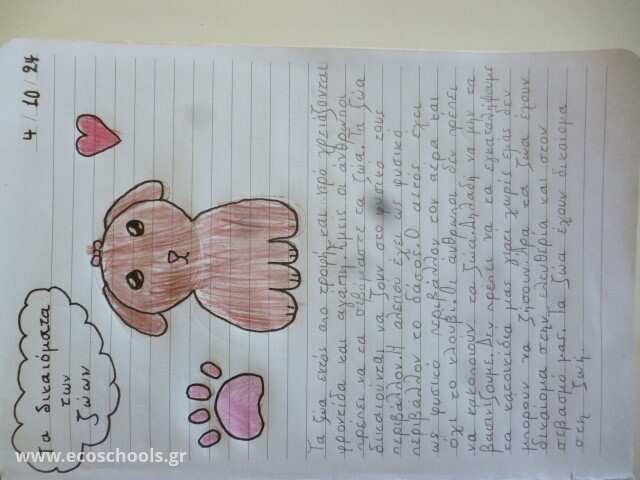 4/10/24
Τα δικαιώματα
των
ζώων
Τα ζώα εκτός από τροφή και νερό χρειάζονται
φροντίδα και αγάπη. Εμείς οι άνθρωποι
πρέπει να τα σεβόμαστε τα ζώα. Τα ζώα
δικαιούνται να ζουν στο φυσικό τους
περιβάλλον. Η αλεπού έχει ως φυσικό
περιβάλλον το δάσος. Ο αετός έχει
ως φυσικό περιβάλλον τον αέρα και
όχι το κλουβί. Οι άνθρωποι δεν πρέπει
να κακοποιούν τα ζώα. Δηλαδή να μην τα
βασανίζουμε. Δεν πρέπει να τα εγκαταλείπουμε
τα κατοικίδια μας γιατί χωρίς εμάς δεν
μπορούν να ζήσουν. Άρα τα ζώα έχουν
δικαίωμα στην ελευθερία και στον
σεβασμό μας. Τα ζώα έχουν δικαίωμα
στη ζωή.
www.ecoschools.gr